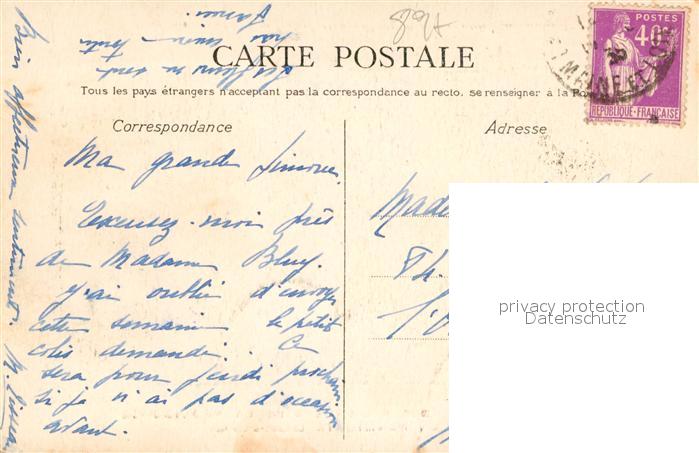 897
CARTE POSTALE
Tous les pays étrangers n'acceptant pas la correspondance au recto, se renseigner à la Po
Correspondance
Adresse
POSTES
40c
REPUBLIQUE-FRANÇAISE
SEINE ET
Ma grande Simone,
Excusez-moi près
de Madame Bluy.
J'ai oublié d'envoyer
cette semaine le petit
colis demandé. Ce
sera pour jeudi prochain
si je n'ai pas d'occasion
avant.
Bien affectueux sentiments.
Made
Th.
privacy protection
Datenschutz